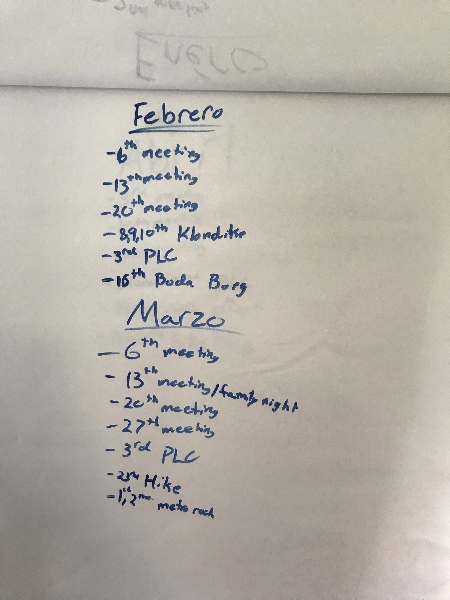 2nd meeting
Enero
Febrero
-6th meeting
-13th meeting
-20th meeting
-8,9,10th Klondike
-3rd PLC
-16th Boda Borg
Marzo
-6th meeting
-13th meeting/family night
-20th meeting
-27th meeting
-3rd PLC
Hike
-1st, 2nd metro rock